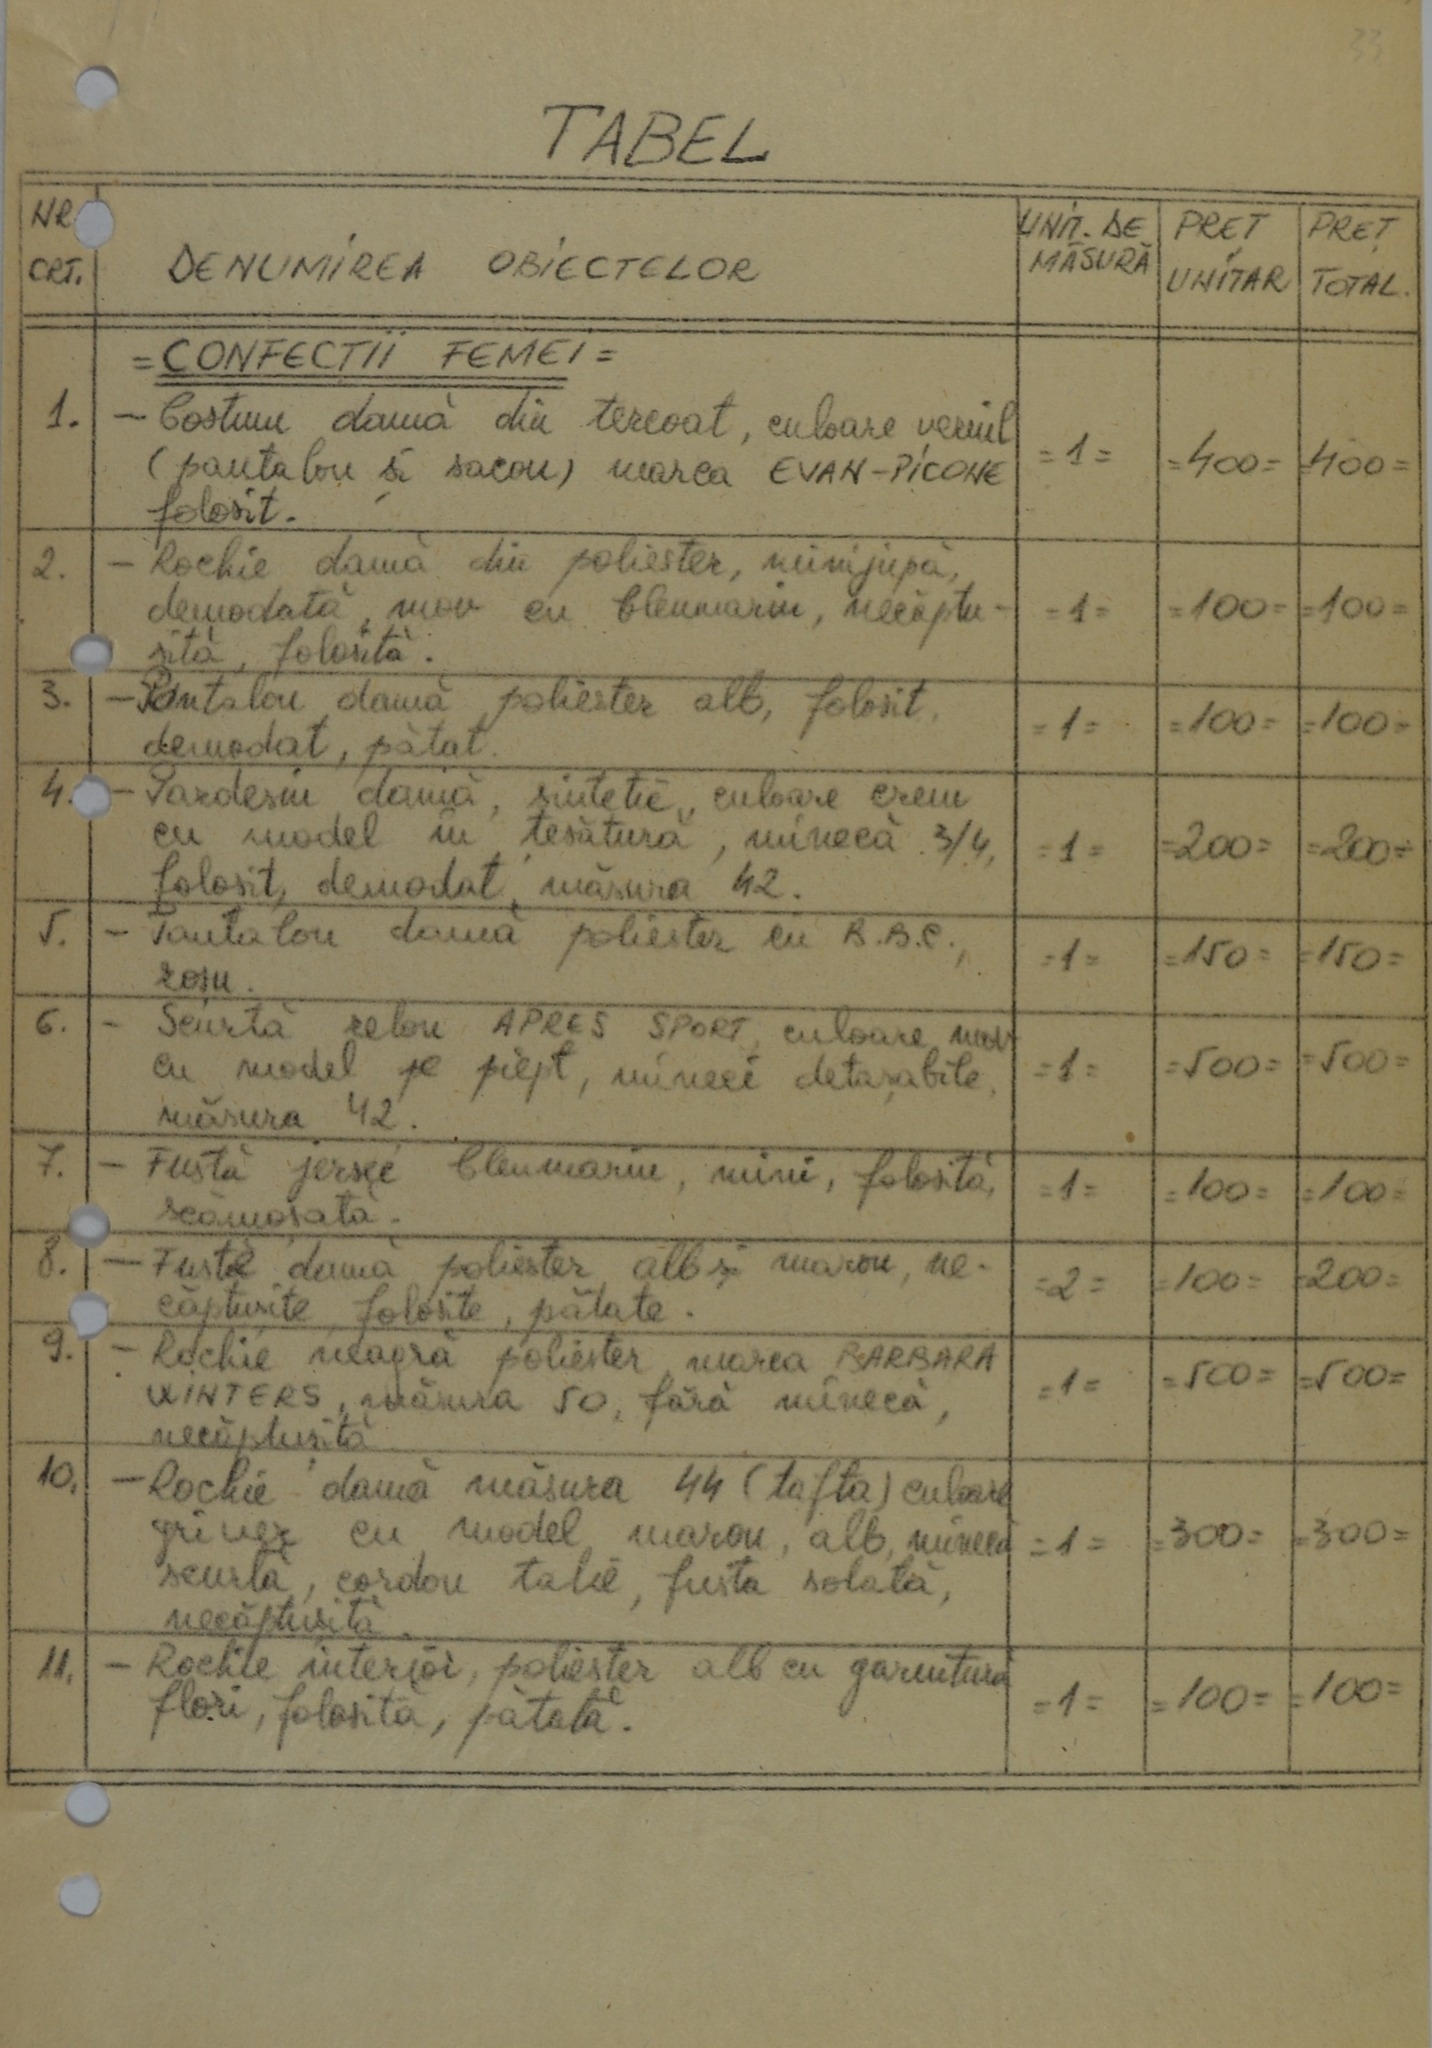 33
TABEL
NR. CRT.
DENUMIREA OBIECTELOR
UNIT. DE MĂSURĂ
PREȚ UNITAR
PREȚ TOTAL.
=CONFECȚII FEMEI=
1. — Costum damă din tercoat, culoare vernil =1= =400= =400=
(pantalon și sacou) marca EVAN-PICONE
folosit.
2. — Rochie damă din poliester, minijupă, =1= =100= =100=
demodată, mov cu bleumarin, necăptu-
șită, folosită.
3. — Pantalon damă poliester alb, folosit, =1= =100= =100=
demodat, pătat.
4. — Pardesiu damă, sintetic, culoare crem =1= =200= =200=
cu model în țesătură, mînecă 3/4,
folosit, demodat, măsura 42.
5. — Pantalon damă poliester cu B.B.C., =1= =150= =150=
roșu.
6. — Scurtă relon APRES SPORT, culoare mov =1= =500= =500=
cu model pe piept, mîneci detașabile,
măsura 42.
7. — Fustă jerse bleumarin, mini, folosită, =1= =100= =100=
scămoșată.
8. — Fuste damă poliester alb și maron, ne- =2= =100= =200=
căptușite, folosite, pătate.
9. — Rochie neagră poliester marca BARBARA =1= =500= =500=
WINTERS, măsura 50, fără mînecă,
necăptușită
10. — Rochie damă măsura 44 (tafta) culoare =1= =300= =300=
gri verz cu model maron, alb, mînecă
scurtă, cordon talie, fusta solată,
necăptușită.
11. — Rochie interior, poliester alb cu garnitură =1= =100= =100=
flori, folosită, pătată.